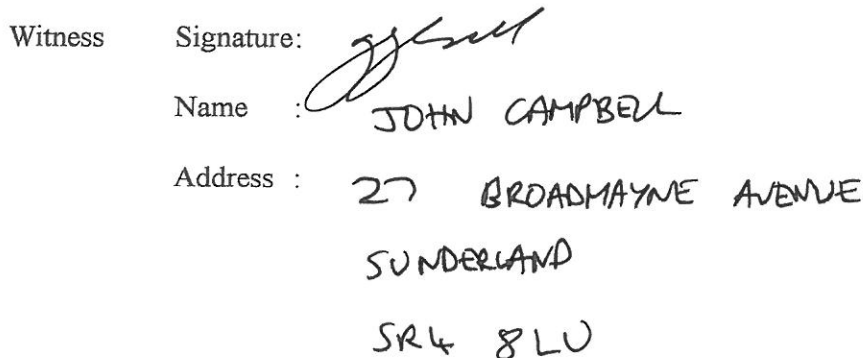 Witness Signature:
Name : JOHN CAMPBELL
Address : 27 BROADMAYNE AVENUE
SUNDERLAND
SR4 8LU